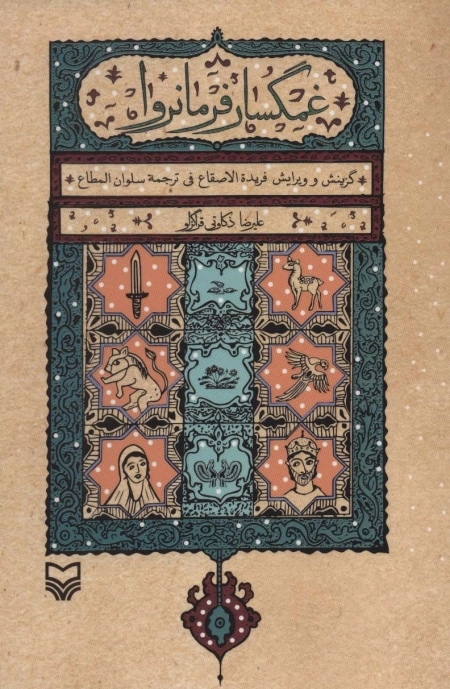 غمگسار فرمانروا
گزینش و ویرایش فریدة الاصقاع فی ترجمة سلوان المطاع
علیرضا ذکاوتی قراگزلو